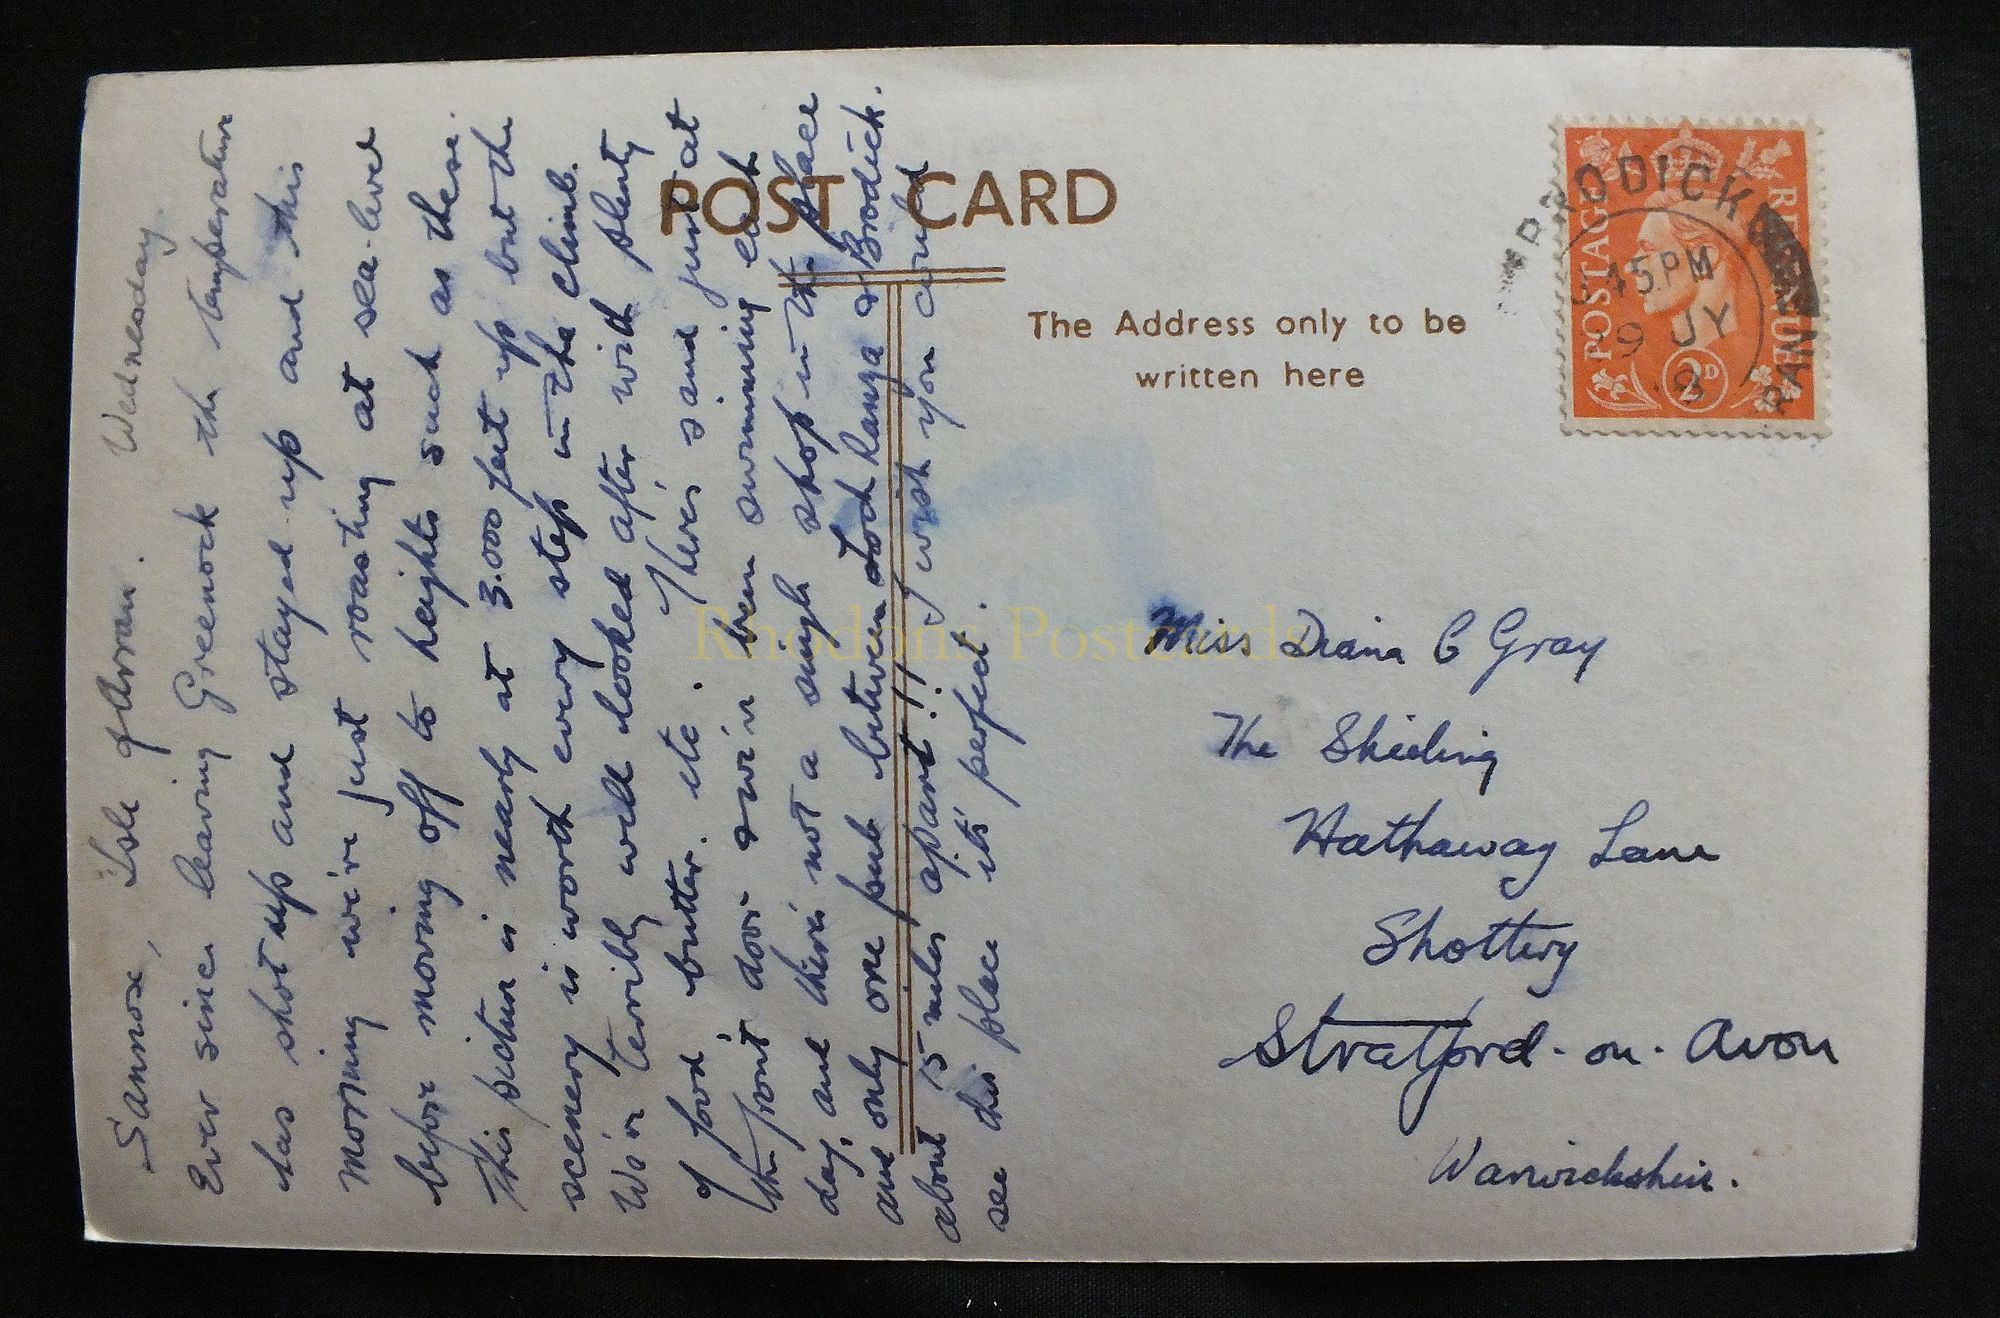 Sannox, Isle of Arran. Wednesday.
Ever since leaving Greenock the temperature
has shot up and stayed up and this
morning we're just roasting at sea-level
before moving off to heights such as these.
This picture is nearly at 3.000 feet up but the
scenery is worth every step in the climb.
We're terribly well looked after with plenty
of food butter. etc. There's sand just at
the front door & we've been swimming each
day, and there's not a single shop in the place
and only one pub between Lochranza & Brodick.
about 15 miles apart!! I wish you could
see this place its' perfect.
POST CARD
The Address only to be
written here
BRODICK
45.PM
9 JY
8
RAN
POSTAGE
REVENUE
2D
Miss Diana C Gray
The Shieling
Hathaway Lane
Shottery
Stratford-on-Avon
Warwickshire.
Rhodons Postcards